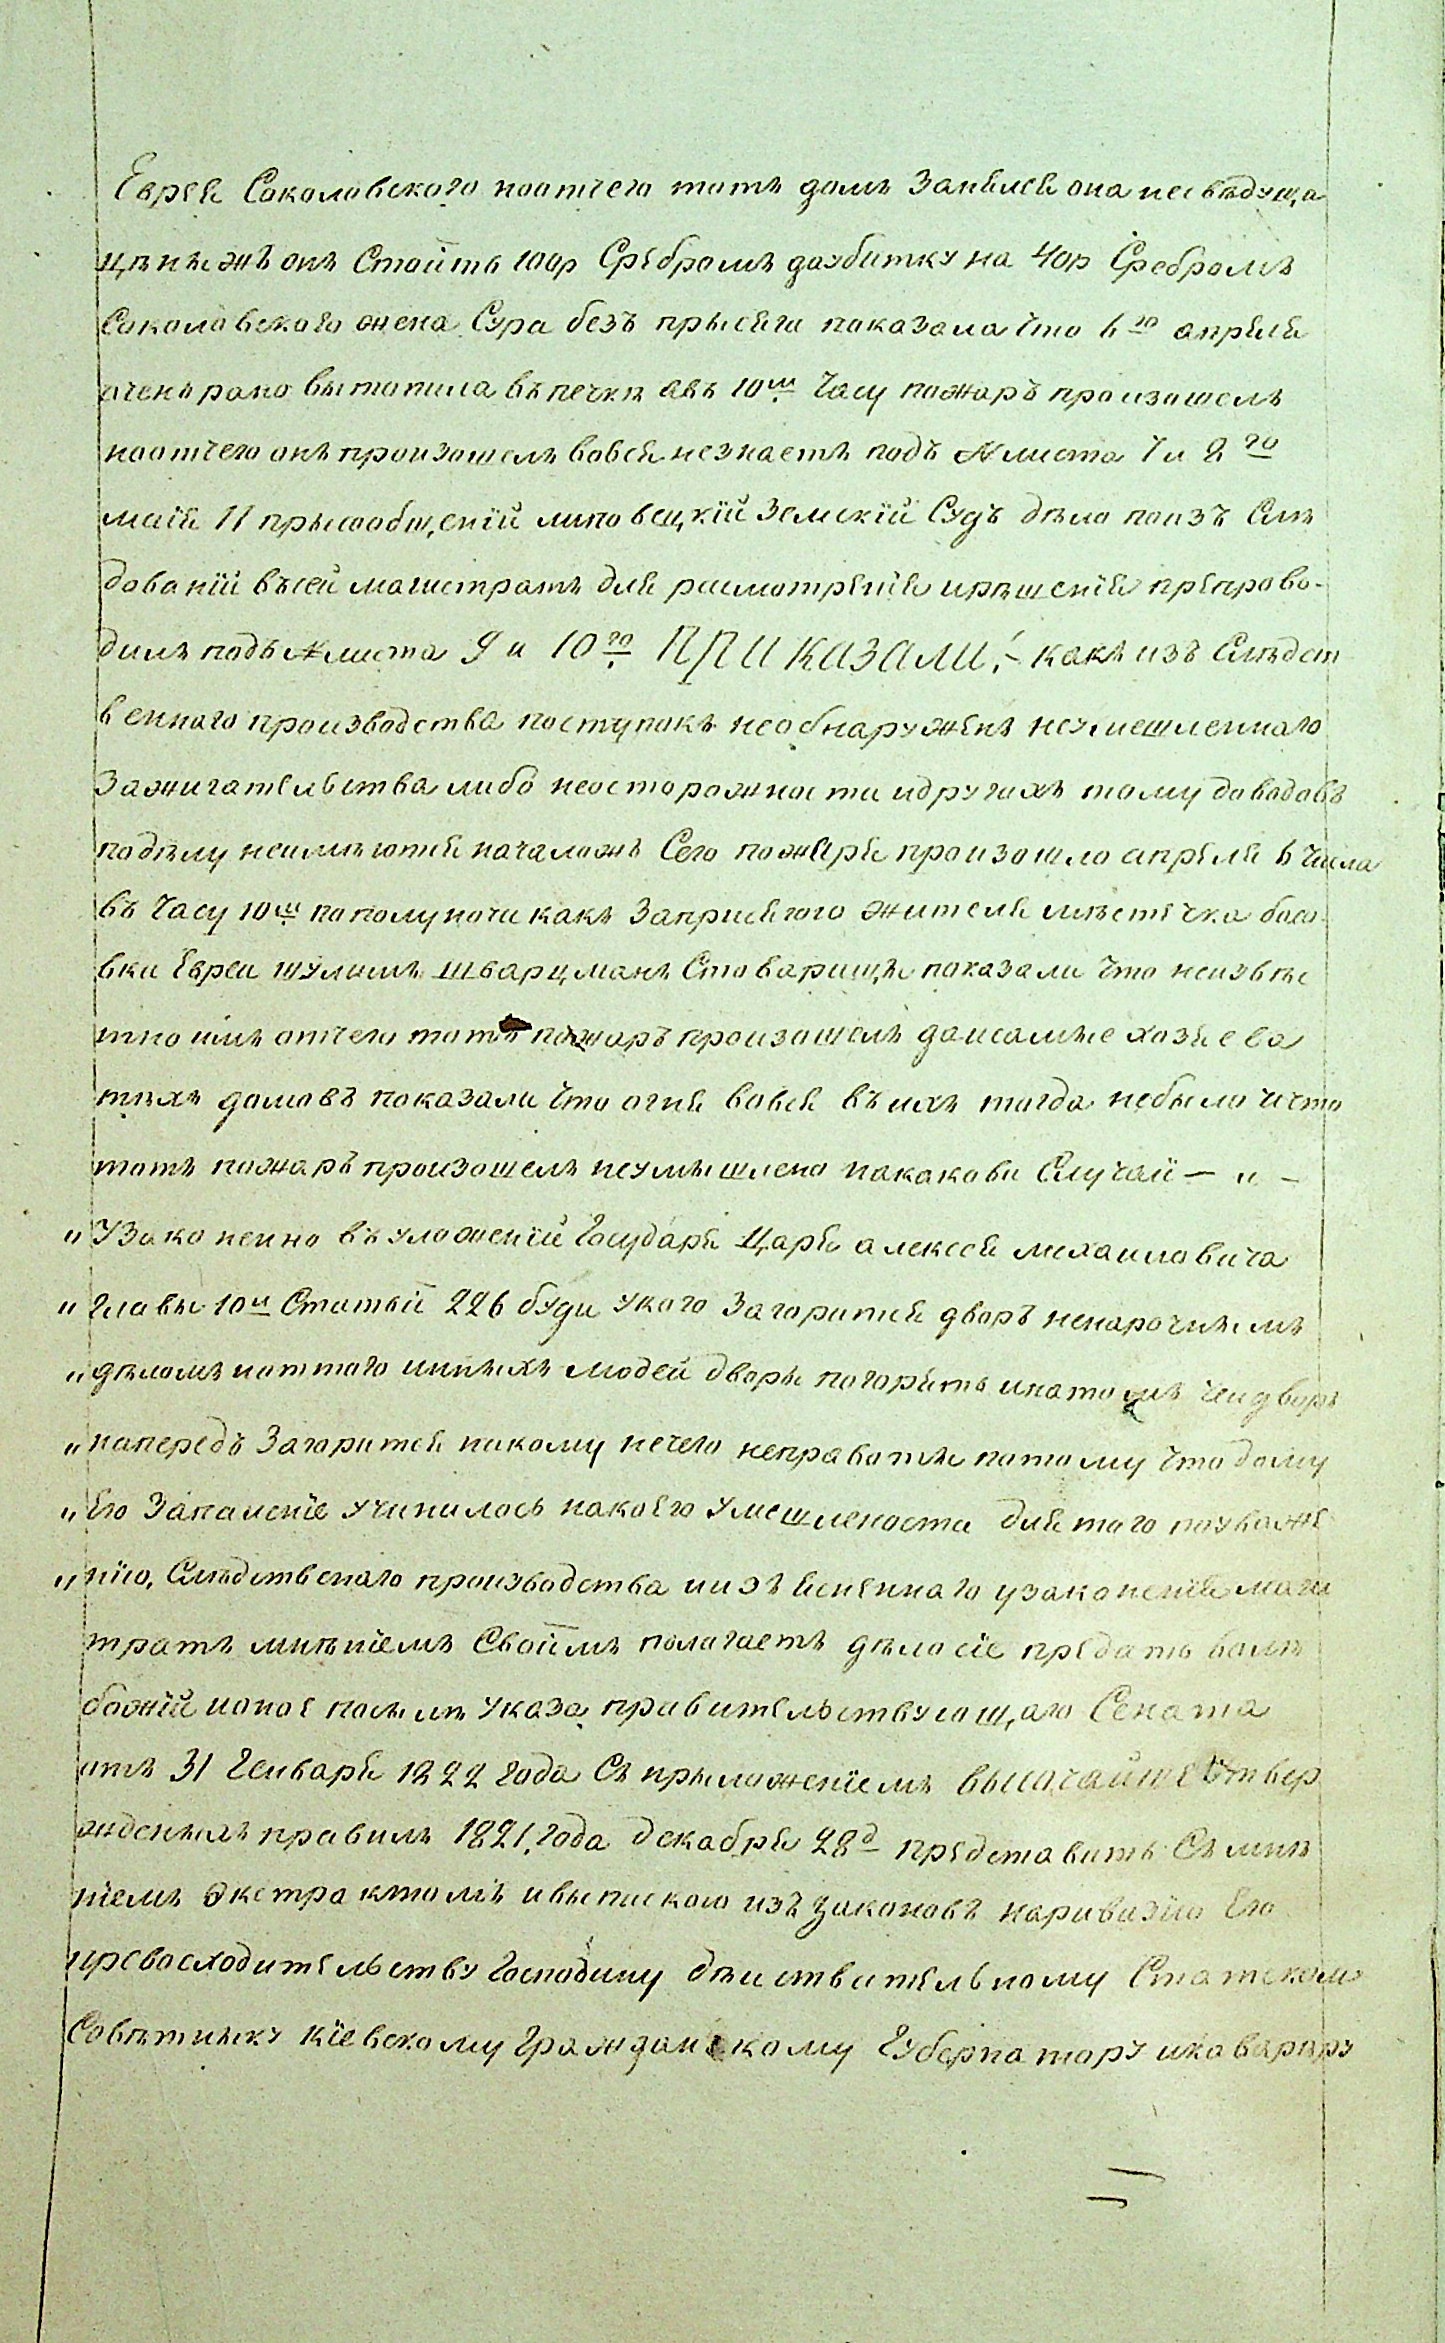 Еврея Соколовского ноотчего тотъ домъ Занялся она несвѣдуща
цѣныжъ онъ Стоитъ 100р Сребромъ даубитку на 40р Сребромъ
Соколовского жена Сура безъ прысяги показала что 6го апреля
очень рано вытопила въ печки авъ 10мъ Часу пожаръ произошелъ
ноотчего онъ произошелъ вовся незнаетъ подъ № листа 7 и 8го
маія 11 прысообщеніи липовецкій Земскій Судъ дѣло поизъ Слѣ
дованіи въсей магистратъ для расмотренія ирѣшенія препрово-
дилъ подъ № листа 9 и 10го ПРИКАЗАЛИ:- какъ изъ Слѣдст
венного производства поступокъ необнаруженъ неумешленнаго
Зажигательства либо неосторожности идругихъ тому доводовъ
подѣлу неимѣются началожъ Сего пожаря произошло апреля 6 числа
въ Часу 10мъ пополуночи какъ Заприсягою жителя мѣстечка
вки Евреи шулимъ шварцманъ Стоварищы показали что неизвѣс
тно имъ отчего тотъ пожаръ произошелъ даисамые хозяева
тѣхъ домовъ показали что огня вовся въ ихъ тогда небыло ичто
тотъ пожаръ произошелъ неумышлено накакови Случаи — „ —
„ Узаконенно въ уложеніи Государя Царя алексея михаиловича
„ главы 10й Статьи 226 буди укого Загорится дворъ ненарочнымъ
„ дѣломъ иоттого иныхъ людей дворы погорятъ инатомъ чеи дворъ
„ напередъ Загорится никому нечего неправоты потому что дому
„ Его Запаленіе учинилось накоего умешлености для того поуваже
„ нію, Слѣдственаго производства иизъясненнаго узаконенія маги
тратъ мнѣніемъ Своимъ полагаетъ дѣло сіе предать волѣ
божіи ионое посылѣ указа правительствующаго Сената
отъ 31 Генваря 1822 года Съ прыложеніемъ высочайше Утвер
жденымъ правилъ 1821. года декабря 28д представить Съ мнѣ
ніемъ Экстрактомъ ивыпискою изъ законовъ наривизію Его
превосходительству Господину дѣиствительному Статском
Совѣтныку кіевскому Гражданскому Губернатору икаварыру